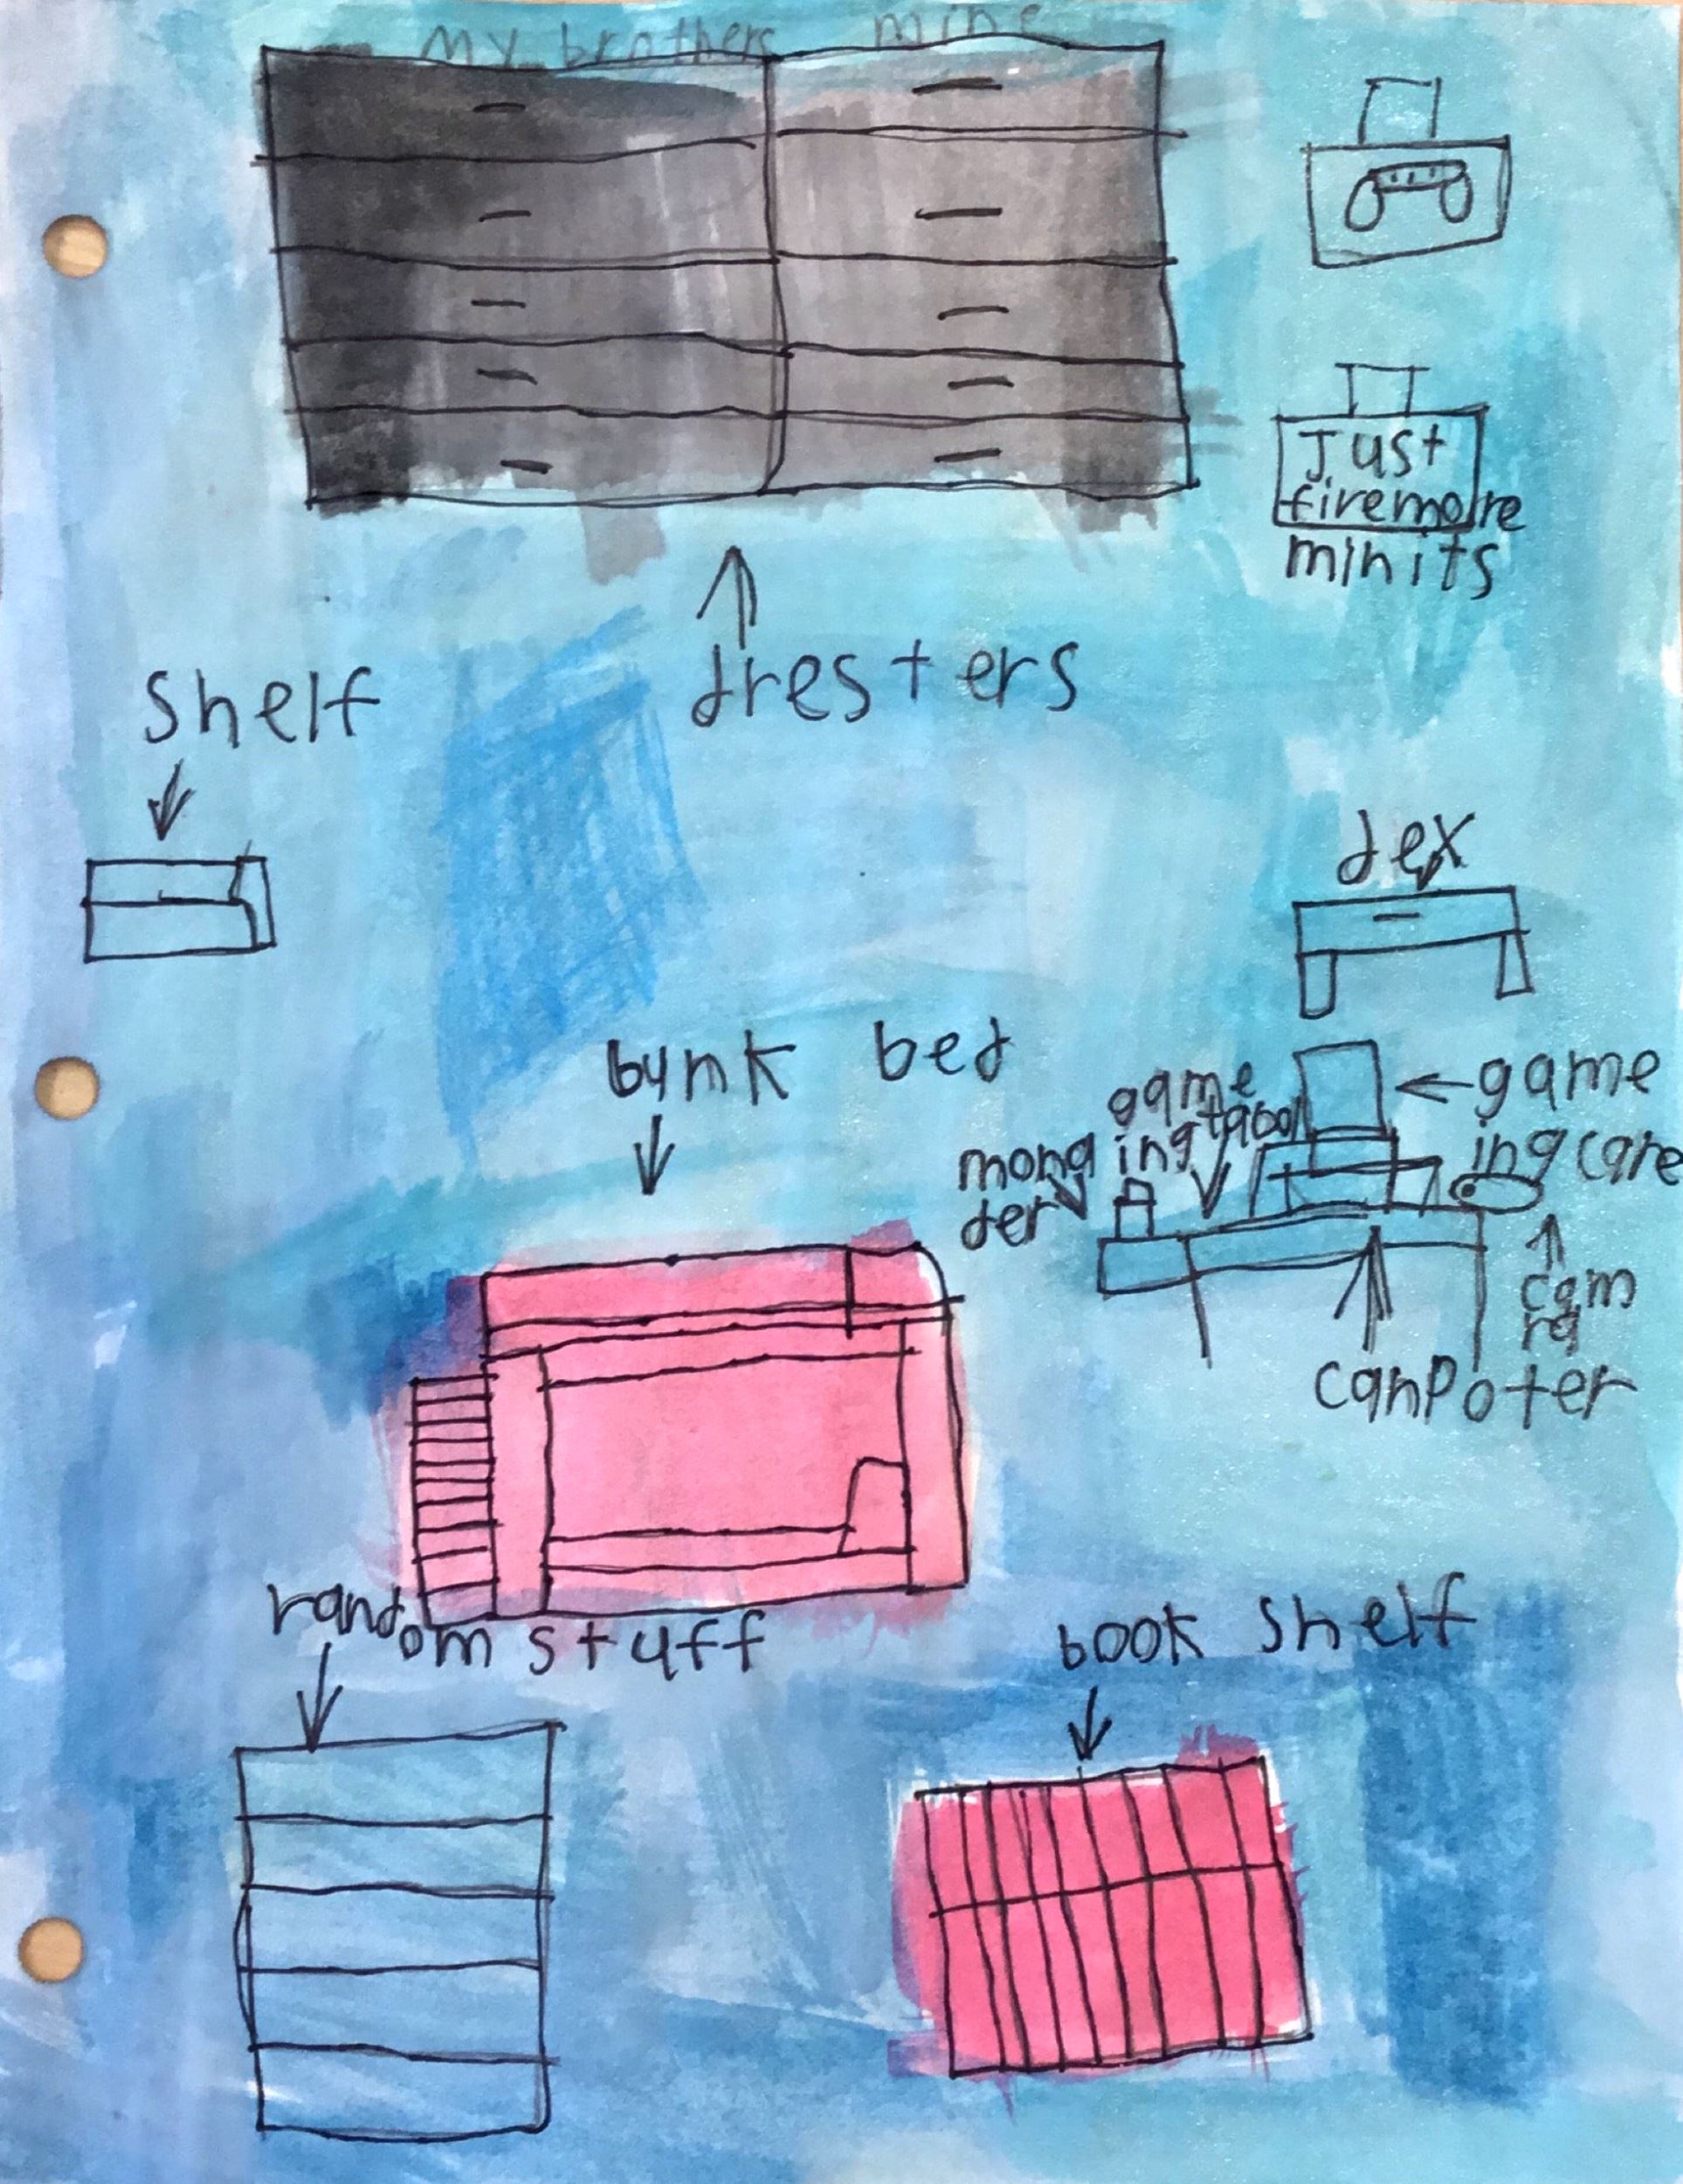 my brothers mine
Just
firemore
minits
dresters
shelf
dex
bunk bed
game
ing tabol
game
ing care
mona
der
cam
ra
canpoter
random stuff
book shelf